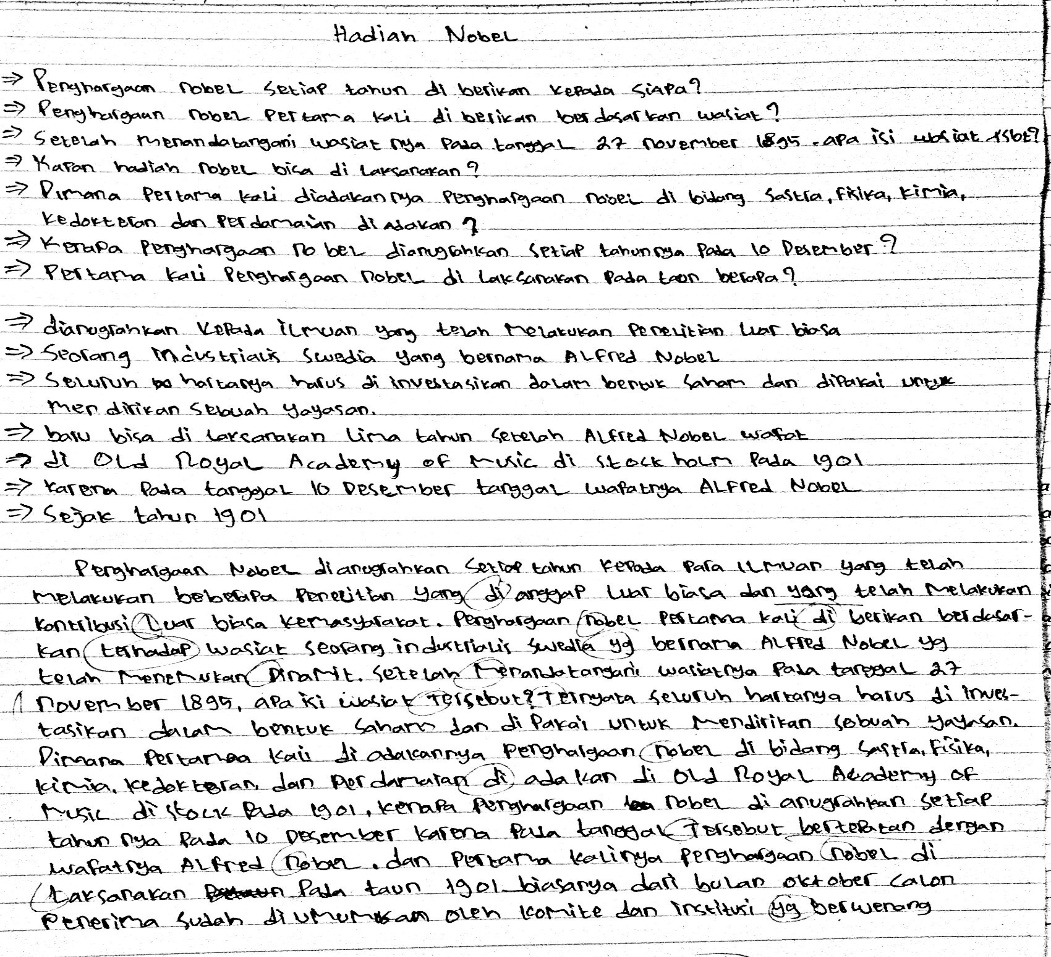 Hadiah Nobel
⇒ Penghargaan nobel setiap tahun di berikan kepada siapa?
⇒ Penghargaan nobel pertama kali di berikan berdasarkan wasiat?
⇒ Setelah menandatangani wasiat nya pada tanggal 27 november 1895. apa isi wasiat tsbt?
⇒ Kapan hadiah nobel bisa di laksanakan?
⇒ Dimana pertama kali diadakan nya penghargaan nobel di bidang sastra, fisika, kimia,
kedokteran dan perdamaian di adakan?
⇒ Kenapa penghargaan nobel dianugrahkan setiap tahunnya pada 10 Desember?
⇒ Pertama kali penghargaan nobel di laksanakan pada taon berapa?
⇒ dianugrahkan kepada ilmuan yang telah melakukan penelitian luar biasa
⇒ Seorang industrialis swedia yang bernama ALfred Nobel
⇒ Seluruh hartanya harus di investasikan dalam bentuk saham dan dipakai untuk
mendirikan sebuah yayasan.
⇒ baru bisa di laksanakan lima tahun setelah ALfred Nobel wafat
⇒ di Old Royal Academy of Music di stockholm pada 1901
⇒ karena pada tanggal 10 Desember tanggal wafatnya ALfred Nobel
⇒ Sejak tahun 1901
Penghargaan Nobel dianugrahkan setiap tahun kepada para ilmuan yang telah
melakukan beberapa penelitian yang di anggap luar biasa dan yang telah melakukan
kontribusi luar biasa kemasyarakat. Penghargaan nobel pertama kali di berikan berdasar-
kan terhadap wasiat seorang industrialis swedia yg bernama ALfred Nobel yg
telah menemukan Dinamit. setelah menandatangani wasiatnya pada tanggal 27
november 1895, apa isi wasiat tersebut? Ternyata seluruh hartanya harus di inves-
tasikan dalam bentuk saham dan di pakai untuk mendirikan sebuah yayasan.
Dimana pertama kali di adakannya penghargaan nobel di bidang sastra, fisika,
kimia, kedokteran, dan perdamaian di adakan di Old Royal Academy of
Music di stock pada 1901, kenapa penghargaan nobel di anugrahkan setiap
tahun nya pada 10 Desember karena pada tanggal tersebut bertepatan dengan
wafatnya ALfred nobel. dan pertama kalinya penghargaan nobel di
Laksanakan pada taun 1901 biasanya dari bulan oktober calon
penerima sudah di umumkan oleh komite dan institusi yg berwenang